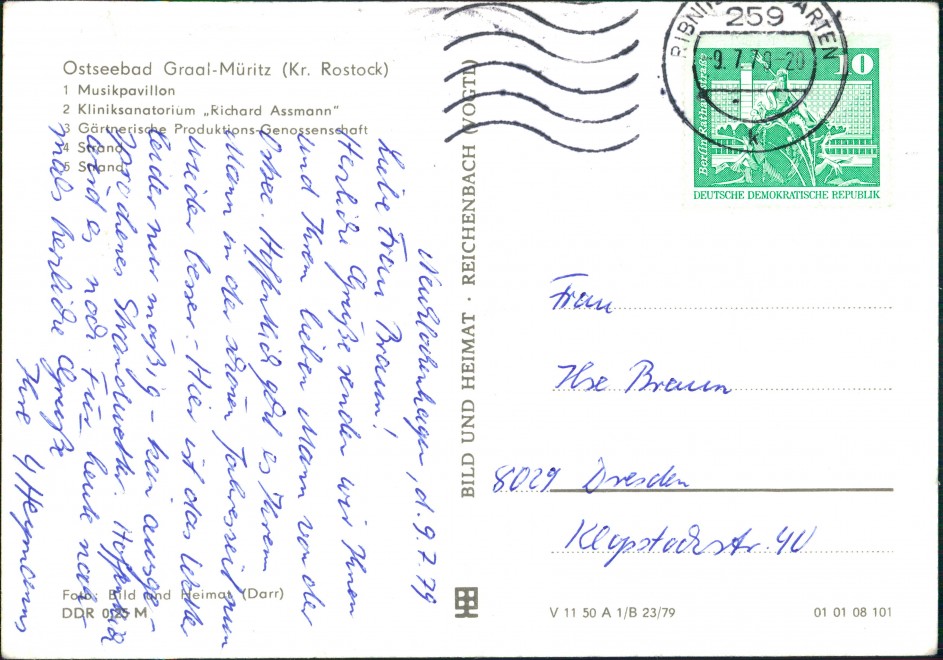 Ostseebad Graal-Müritz (Kr. Rostock)
1 Musikpavillon
2 Kliniksanatorium „Richard Assmann"
3 Gärtnerische Produktions-Genossenschaft
4 Strand
5 Strand
Neuklockenhagen, d. 9.7.79
Liebe Frau Braun!
Herzliche Grüße senden wir Ihnen
und Ihrem lieben Mann von der
Ostsee. Hoffentlich geht es Ihrem
Mann in der schönen Jahreszeit nun
wieder besser. - Hier ist das Wetter
leider nur mäßig - kein ausge-
sprochenes Strandwetter. Hoffentlich
wird es noch. Für heute noch-
mals herzliche Grüße
Ihre 4 Heymanns
Foto: Bild und Heimat (Darr)
DDR 0,25 M
BILD UND HEIMAT · REICHENBACH (VOGTL)
V 11 50 A 1/B 23/79
01 01 08 101
259
9.7.79-20
GARTEN
Berlin Rathausstraße
10
DEUTSCHE DEMOKRATISCHE REPUBLIK
Frau
Ilse Braun
8029 Dresden
Klopstockstr. 40